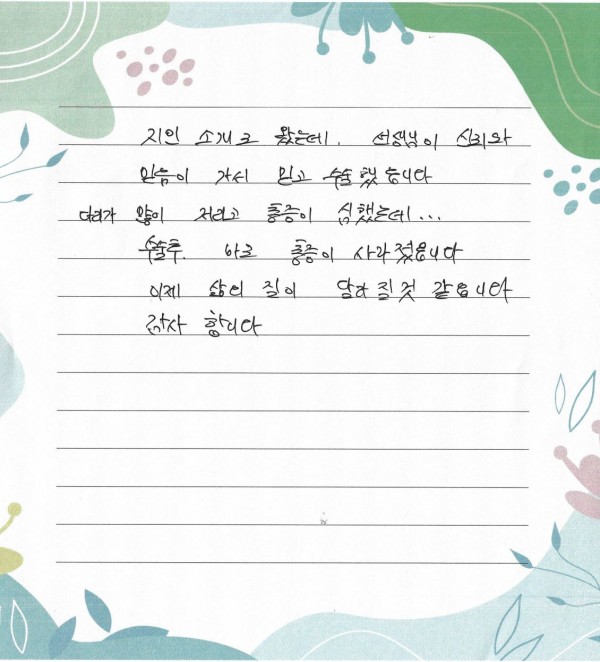 지인 소개로 왔는데. 선생님이 신뢰와
믿음이 가서 믿고 수술했습니다
다리가 많이 저리고 통증이 심했는데...
수술후. 바로 통증이 사라졌습니다
이제 삶의 질이 달라질것 같습니다
감사합니다